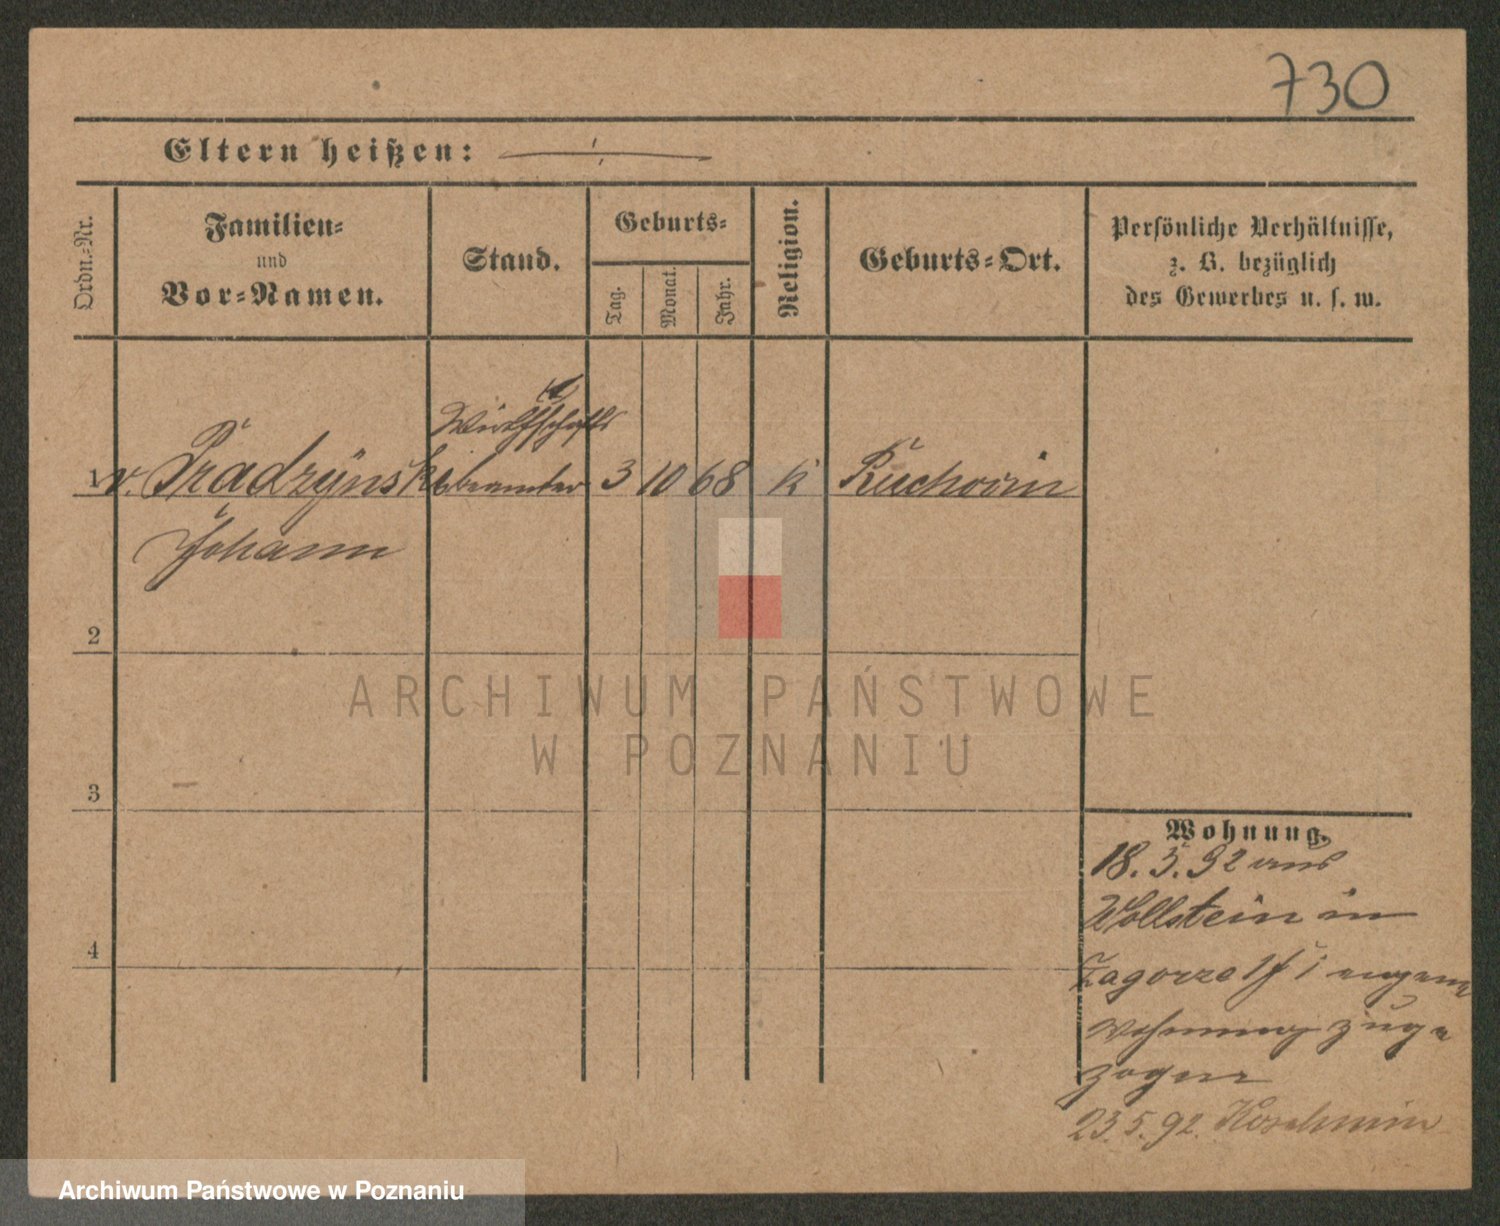 730
Eltern heißen:
Ordn.-Nr.
Familien-
und
Vor-Namen.
Stand.
Geburts-
Tag.
Monat.
Jahr.
Religion.
Geburts-Ort.
Persönliche Verhältnisse,
z. B. bezüglich
des Gewerbes u. s. w.
Wirthschafts
1 v. Pradzynski beamter 3 10 68 k Ruchocin
Johann
2
3
4
Wohnung.
18. 5. 92 aus
Wollstein in
Zagorze
Wohnung zuge
zogen
23. 5. 92. Koschmin
ARCHIWUM PAŃSTWOWE
W POZNANIU
Archiwum Państwowe w Poznaniu